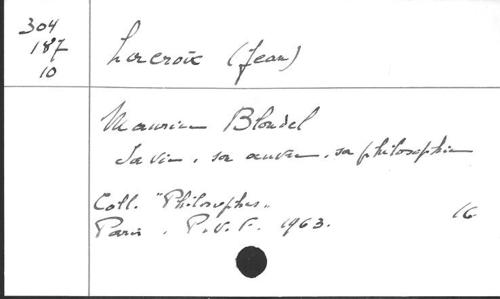 304
187
10
Lacroix (Jean)
Maurice Blondel
Sa vie, son œuvre, sa philosophie
Coll. "Philosophes"
Paris, P.U.F. 1963. 16